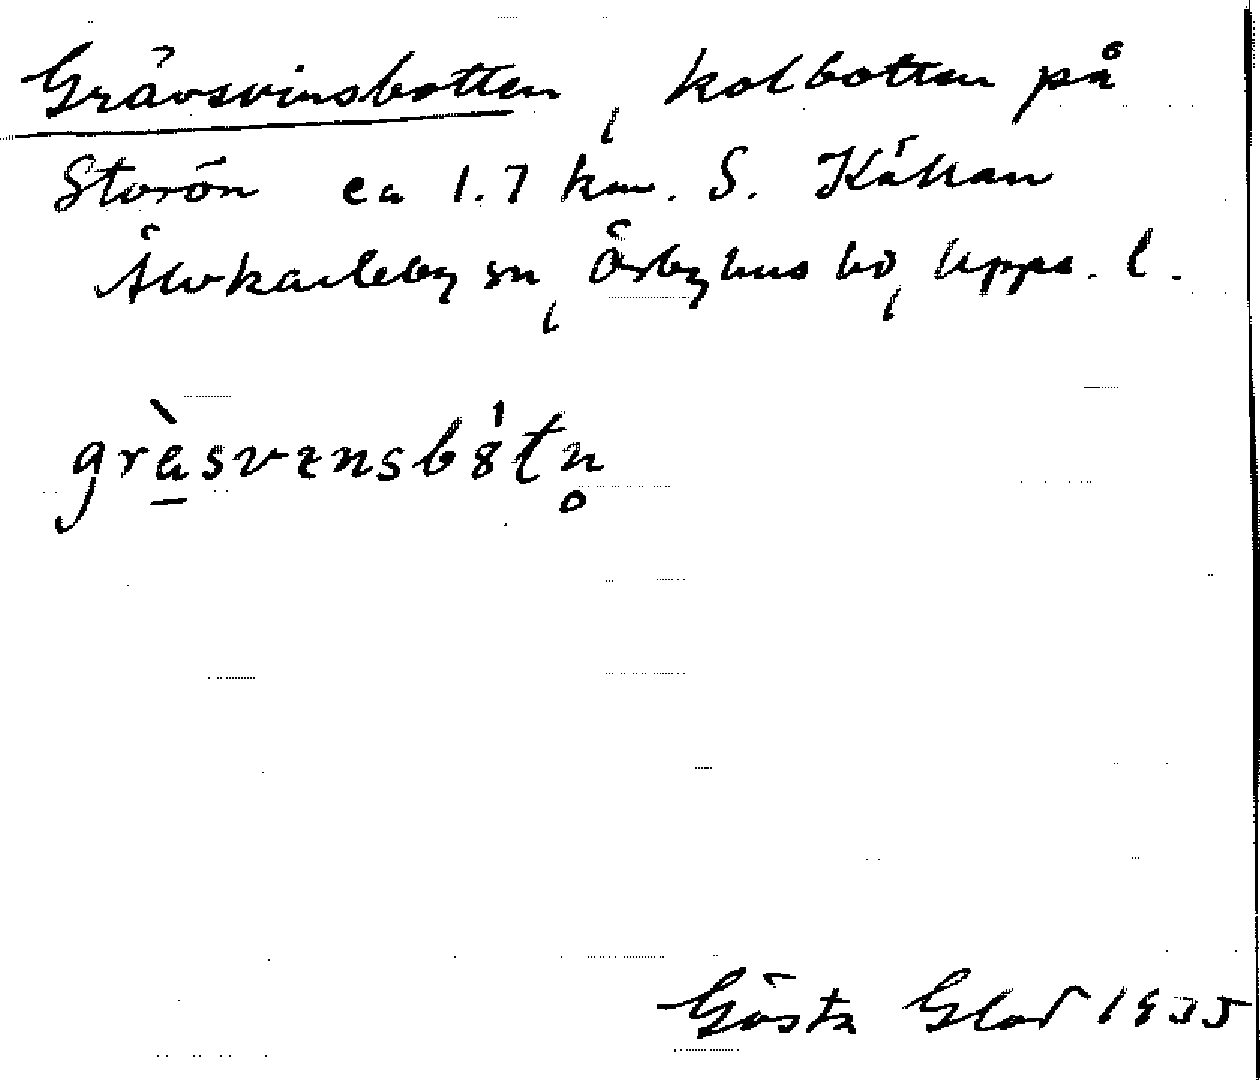 Grävsvinsbotten, kolbotten på
Storön ca 1.7 km. S. Kållan
Älvkarleby sn, Örbyhus hd, Upps. l.
gräsvensbòtn̥
Gösta Glad 1935